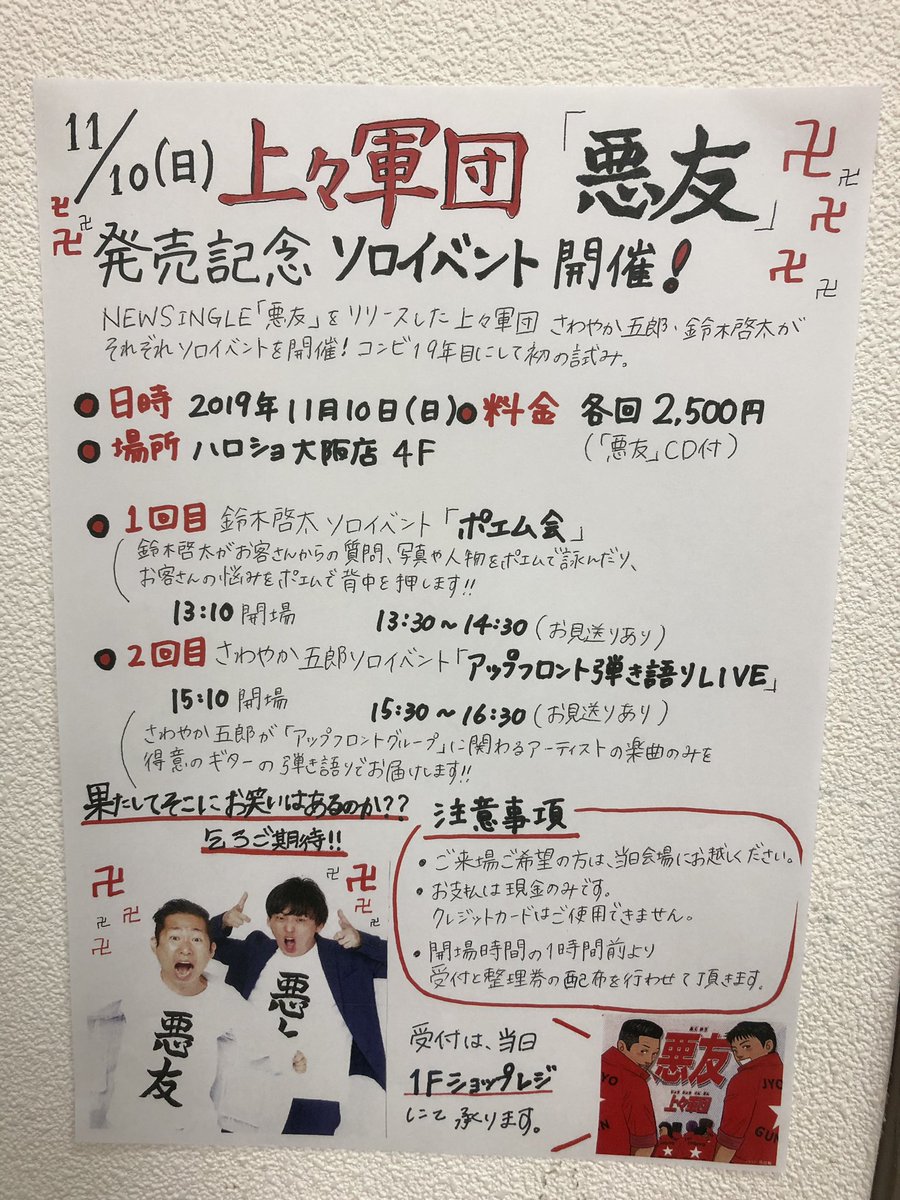 11/10(日) 上々軍団「悪友」
発売記念 ソロイベント 開催!
NEWSINGLE「悪友」をリリースした上々軍団 さわやか五郎・鈴木啓太が
それぞれソロイベントを開催! コンビ19年目にして初の試み。
● 日時 2019年11月10日(日) ● 料金 各回 2,500円
(「悪友」CD付)
● 場所 ハロショ大阪店 4F
● 1回目 鈴木啓太 ソロイベント「ポエム会」
鈴木啓太がお客さんからの質問、写真や人物をポエムで詠んだり、
お客さんの悩みをポエムで背中を押します!!
13:10 開場 13:30〜14:30 (お見送りあり)
● 2回目 さわやか五郎ソロイベント「アップフロント弾き語りLIVE」
15:10 開場 15:30〜16:30 (お見送りあり)
さわやか五郎が「アップフロントグループ」に関わるアーティストの楽曲のみを
得意のギターの弾き語りでお届けします!!
果たしてそこにお笑いはあるのか??
乞うご期待!!
卍
悪友
悪
注意事項
・ご来場ご希望の方は、当日会場にお越しください。
・お支払は現金のみです。
クレジットカードはご使用できません。
・開場時間の1時間前より
受付と整理券の配布を行わせて頂きます。
受付は、当日
1Fショップレジ
にて承ります。
悪友
上々軍団
JYO
GUN